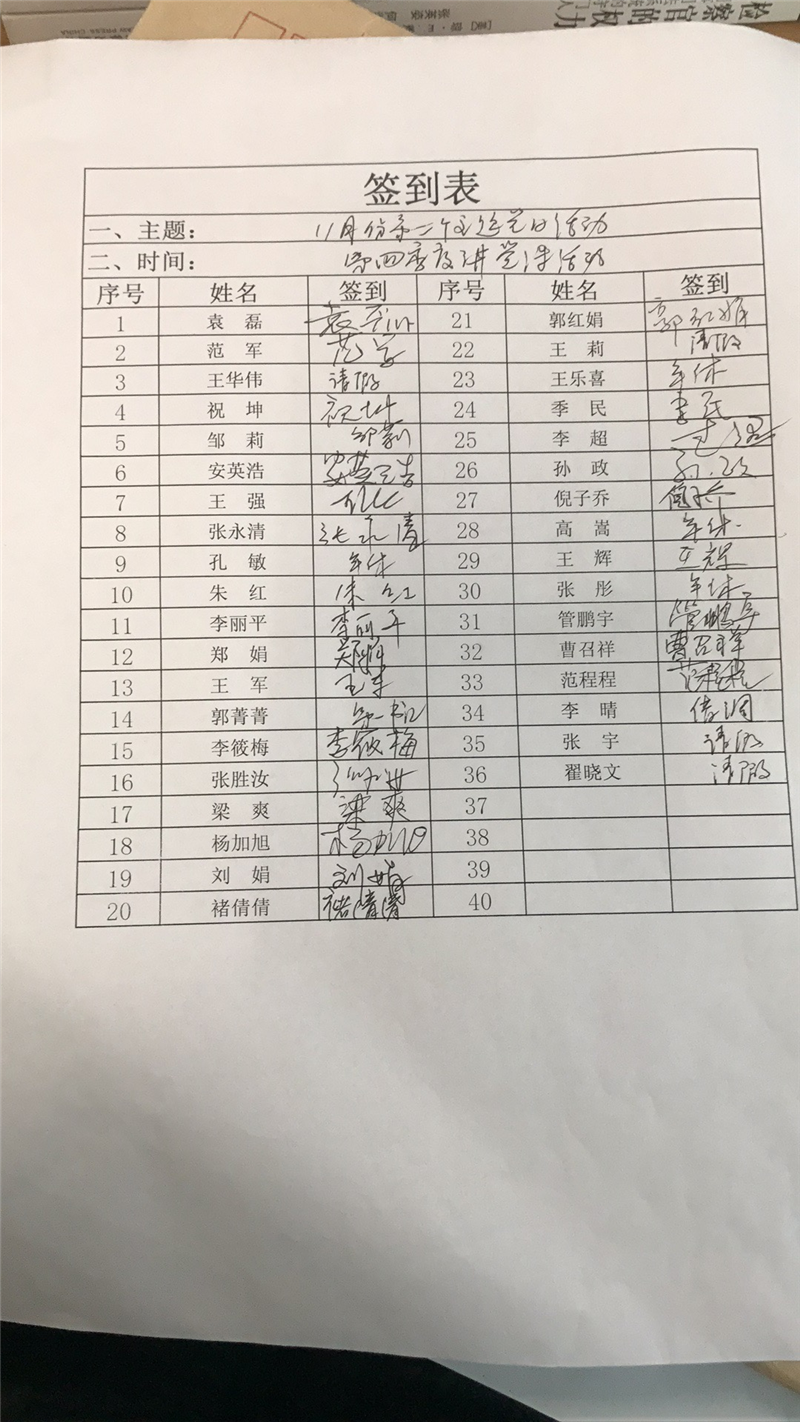 检察官的权力
签到表
一、主题： 11月份第二个主题党日活动
二、时间： 第四季度讲党课活动
序号 姓名 签到 序号 姓名 签到
1 袁磊 21 郭红娟 郭红娟
2 范军 范军 22 王莉 请假
3 王华伟 请假 23 王乐喜 年休
4 祝坤 祝坤 24 季民 季民
5 邹莉 邹莉 25 李超
6 安英浩 安英浩 26 孙政 孙政
7 王强 27 倪子乔 倪子乔
8 张永清 张永清 28 高嵩 年休
9 孔敏 年休 29 王辉 王辉
10 朱红 朱红 30 张彤 年休
11 李丽平 李丽平 31 管鹏宇 管鹏宇
12 郑娟 郑娟 32 曹召祥 曹召祥
13 王军 王军 33 范程程 范程程
14 郭菁菁 第一书记 34 李晴 借调
15 李筱梅 李筱梅 35 张宇 请假
16 张胜汝 36 翟晓文 请假
17 梁爽 梁爽 37
18 杨加旭 杨加旭 38
19 刘娟 刘娟 39
20 褚倩倩 褚倩倩 40